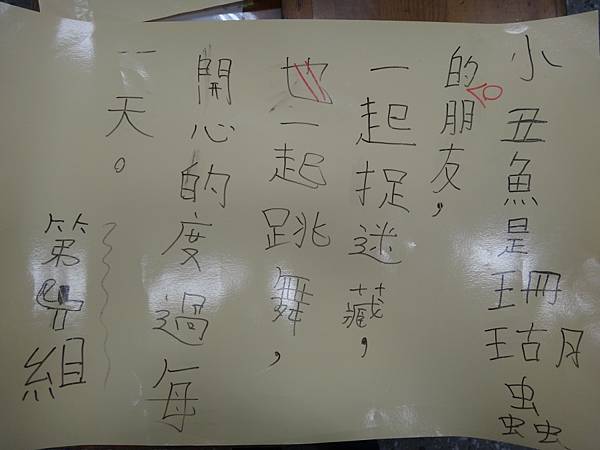 小丑魚是珊瑚蟲
的朋友，
一起捉迷藏，
也一起跳舞，
開心的度過每
一天。
第組